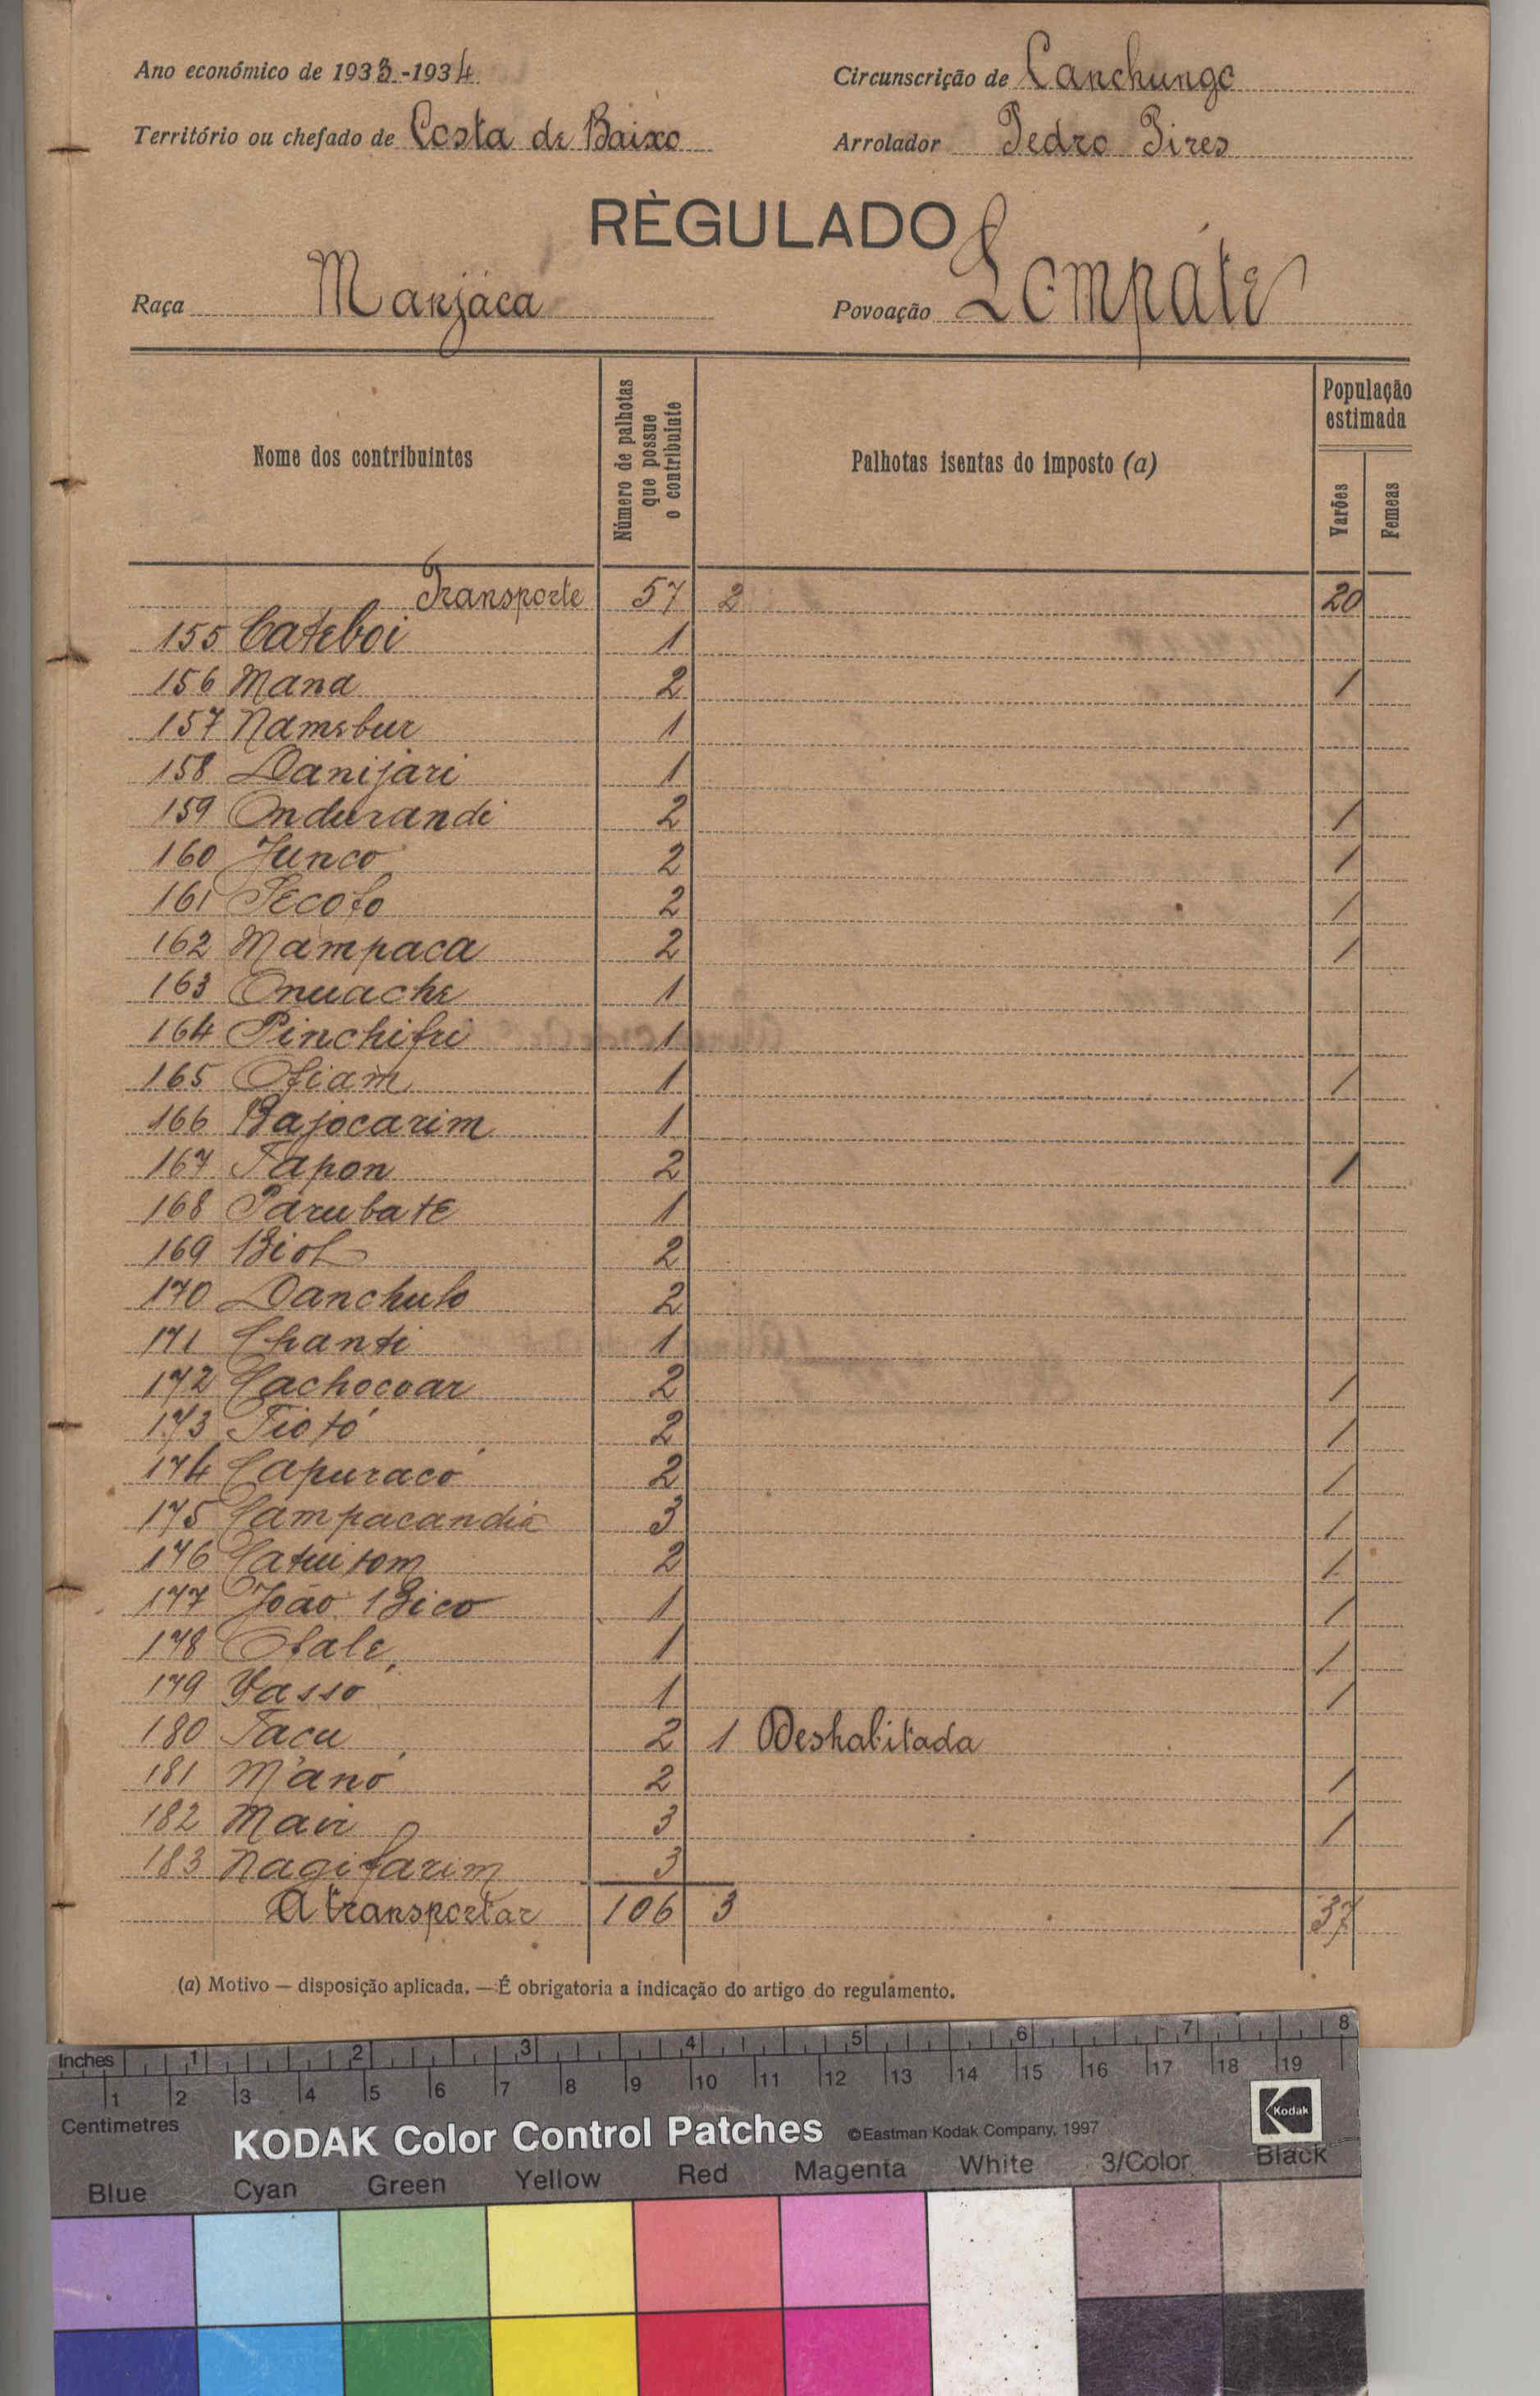 Ano económico de 1933-1934
Circunscrição de Canchungo
Território ou chefado de Costa de Baixo
Arrolador Pedro Pires
RÈGULADO
Raça Manjáca
Povoação Lompáte
Nome dos contribuintes
Número de palhotas que possue o contribuinte
Palhotas isentas do imposto (a)
População estimada
Varões
Femeas
Transporte 57 2 20
155 Cateboi 1
156 Mana 2 /
157 Namebur 1
158 Danijari 1
159 Ondurandi 2 /
160 Junco 2 /
161 Pecolo 2 /
162 Mampaca 2 /
163 Onuache 1
164 Pinchifri 1
165 Ofiam 1 /
166 Bajocarim 1
167 Tapon 2 /
168 Parubate 1
169 Biol 2
170 Danchulo 2
171 Chanti 1
172 Cachocoar 2 /
173 Tiotó 2 /
174 Capuracó 2 /
175 Campacandia 3 /
176 Catuitom 2 /
177 João Bico 1 /
178 Ofale 1 /
179 Vassó 1 /
180 Tacu 2 1 Deshabitada
181 M'anó 2 /
182 Mair 3 /
183 Nagifarim 3
A transportar 106 3 37
(a) Motivo — disposição aplicada. — É obrigatoria a indicação do artigo do regulamento.
Inches 1 2 3 4 5 6 7 8
1 2 3 4 5 6 7 8 9 10 11 12 13 14 15 16 17 18 19
Centimetres
KODAK Color Control Patches ©Eastman Kodak Company, 1997 Kodak
Blue Cyan Green Yellow Red Magenta White 3/Color Black